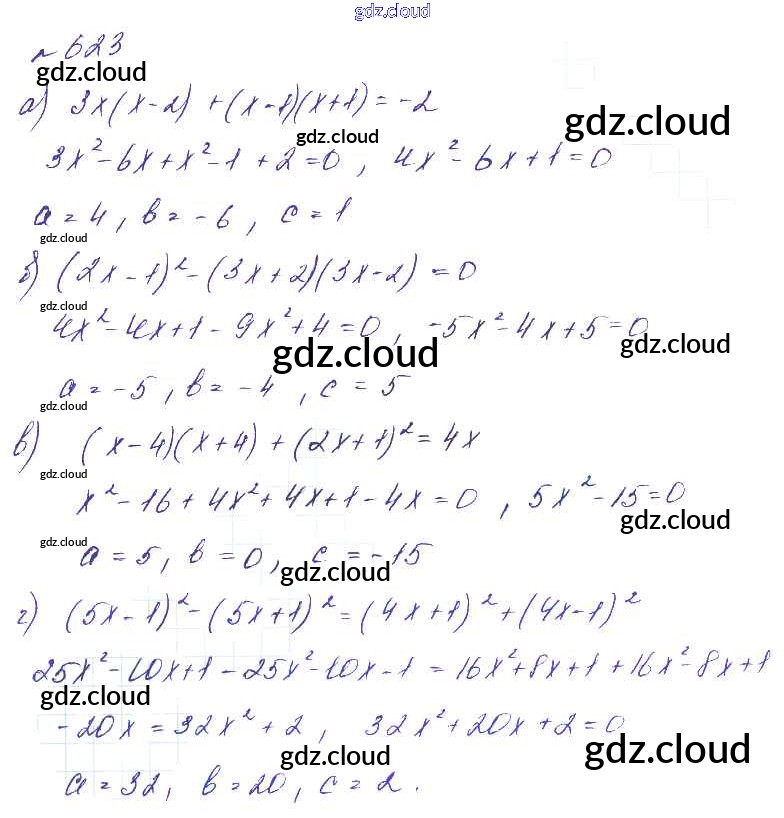 gdz.cloud
№ 623
gdz.cloud
а) 3x(x-2) + (x-1)(x+1) = -2
gdz.cloud
gdz.cloud
3x² - 6x + x² - 1 + 2 = 0 , 4x² - 6x + 1 = 0
a = 4 , b = -6 , c = 1
gdz.cloud
б) (2x-1)² - (3x+2)(3x-2) = 0
gdz.cloud
4x² - 4x + 1 - 9x² + 4 = 0 , -5x² - 4x + 5 = 0
gdz.cloud
gdz.cloud
a = -5 , b = -4 , c = 5
gdz.cloud
в) (x-4)(x+4) + (2x+1)² = 4x
gdz.cloud
x² - 16 + 4x² + 4x + 1 - 4x = 0 , 5x² - 15 = 0
gdz.cloud
gdz.cloud
a = 5 , b = 0 , c = -15
gdz.cloud
г) (5x-1)² - (5x+1)² = (4x+1)² + (4x-1)²
25x² - 10x + 1 - 25x² - 10x - 1 = 16x² + 8x + 1 + 16x² - 8x + 1
gdz.cloud
-20x = 32x² + 2 , 32x² + 20x + 2 = 0
gdz.cloud
gdz.cloud
a = 32 , b = 20 , c = 2 .